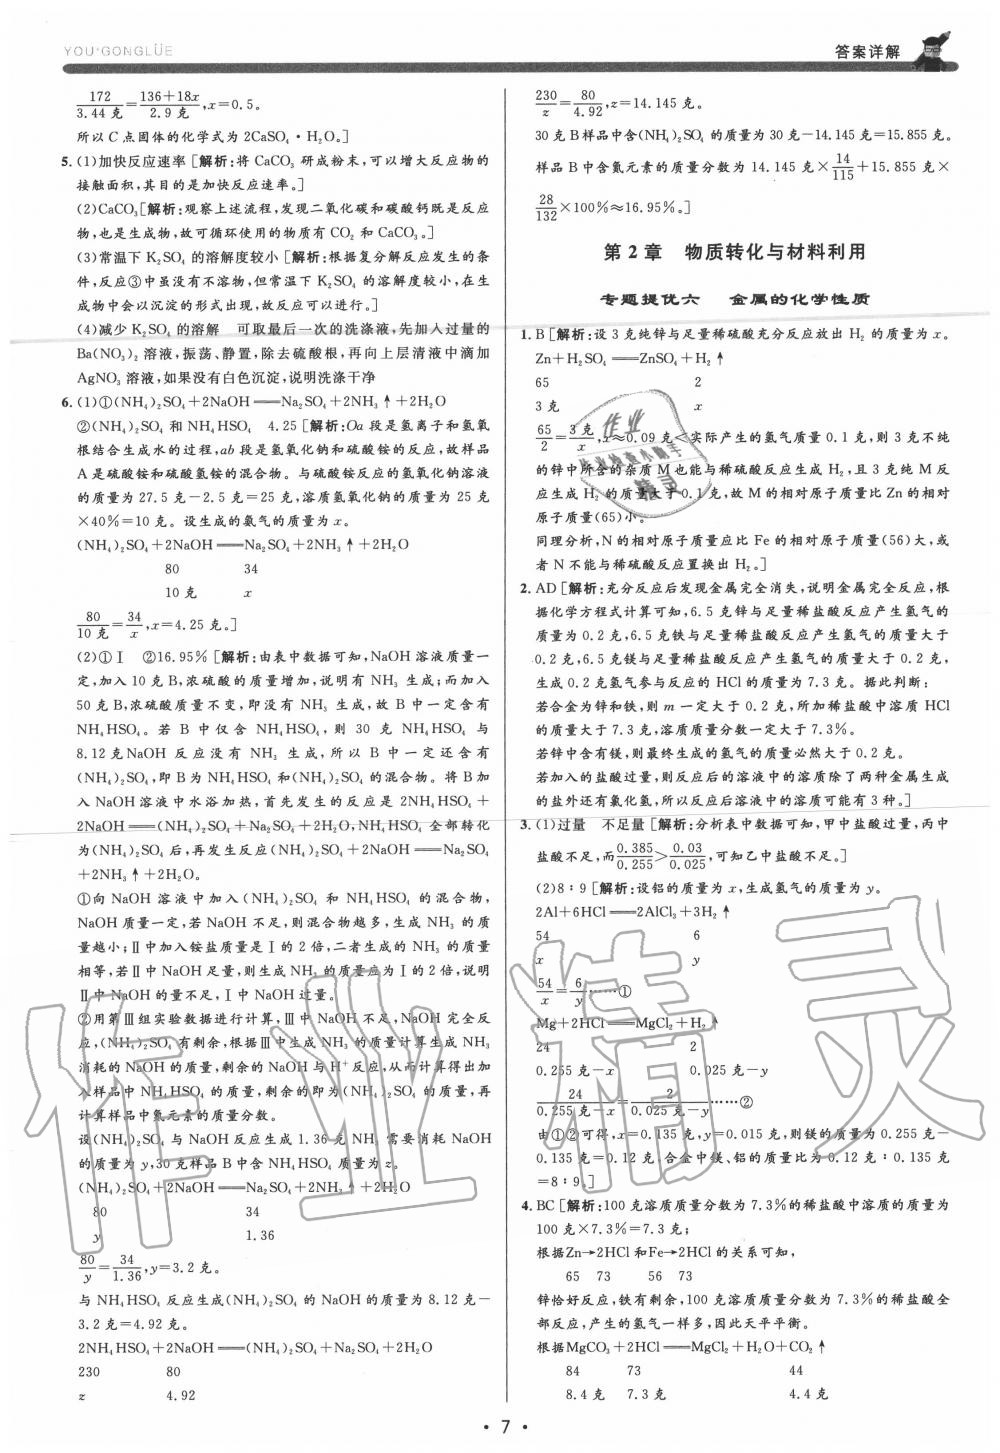 YOU·GONGLÜE
答案详解
172/3.44克=136+18x/2.9克,x=0.5。
所以C点固体的化学式为2CaSO₄·H₂O。]
5. (1)加快反应速率[解析:将CaCO₃研成粉末,可以增大反应物的
接触面积,其目的是加快反应速率。]
(2)CaCO₃[解析:观察上述流程,发现二氧化碳和碳酸钙既是反应
物,也是生成物,故可循环使用的物质有CO₂和CaCO₃。]
(3)常温下K₂SO₄的溶解度较小[解析:根据复分解反应发生的条
件,反应③中虽没有不溶物,但常温下K₂SO₄的溶解度较小,在生
成物中会以沉淀的形式出现,故反应可以进行。]
(4)减少K₂SO₄的溶解 可取最后一次的洗涤液,先加入过量的
Ba(NO₃)₂溶液,振荡、静置,除去硫酸根,再向上层清液中滴加
AgNO₃溶液,如果没有白色沉淀,说明洗涤干净
6. (1)①(NH₄)₂SO₄+2NaOH══Na₂SO₄+2NH₃↑+2H₂O
②(NH₄)₂SO₄和NH₄HSO₄ 4.25[解析:Oa段是氢离子和氢氧
根结合生成水的过程,ab段是氢氧化钠和硫酸铵的反应,故样品
A是硫酸铵和硫酸氢铵的混合物。与硫酸铵反应的氢氧化钠溶液
的质量为27.5克-2.5克=25克,溶质氢氧化钠的质量为25克
×40%=10克。设生成的氨气的质量为x。
(NH₄)₂SO₄+2NaOH══Na₂SO₄+2NH₃↑+2H₂O
80 34
10克 x
80/10克=34/x,x=4.25克。]
(2)①Ⅰ ②16.95%[解析:由表中数据可知,NaOH溶液质量一
定,加入10克B,浓硫酸的质量增加,说明有NH₃生成;而加入
50克B,浓硫酸质量不变,即没有NH₃生成,故B中一定含有
NH₄HSO₄。若B中仅含NH₄HSO₄,则30克NH₄HSO₄与
8.12克NaOH反应没有NH₃生成,所以B中一定还含有
(NH₄)₂SO₄,即B为NH₄HSO₄和(NH₄)₂SO₄的混合物。将B加
入NaOH溶液中水浴加热,首先发生的反应是2NH₄HSO₄+
2NaOH══(NH₄)₂SO₄+Na₂SO₄+2H₂O,NH₄HSO₄全部转化
为(NH₄)₂SO₄后,再发生反应(NH₄)₂SO₄+2NaOH══Na₂SO₄
+2NH₃↑+2H₂O。
①向NaOH溶液中加入(NH₄)₂SO₄和NH₄HSO₄的混合物,
NaOH质量一定,若NaOH不足,则混合物越多,生成NH₃的质
量越小;Ⅱ中加入铵盐质量是Ⅰ的2倍,二者生成的NH₃的质量
相等,若Ⅱ中NaOH足量,则生成NH₃的质量应为Ⅰ的2倍,说明
Ⅱ中NaOH的量不足,Ⅰ中NaOH过量。
②用第Ⅲ组实验数据进行计算,Ⅲ中NaOH不足,NaOH完全反
应,(NH₄)₂SO₄有剩余,根据Ⅲ中生成NH₃的质量计算生成NH₃
消耗的NaOH的质量,剩余的NaOH与H⁺反应,从而计算得出加
入样品中NH₄HSO₄的质量,剩余的即为(NH₄)₂SO₄的质量,再
计算样品中氮元素的质量分数。
设(NH₄)₂SO₄与NaOH反应生成1.36克NH₃需要消耗NaOH
的质量为y,30克样品B中含NH₄HSO₄质量为z。
(NH₄)₂SO₄+2NaOH══Na₂SO₄+2NH₃↑+2H₂O
80 34
y 1.36
80/y=34/1.36,y=3.2克。
与NH₄HSO₄反应生成(NH₄)₂SO₄的NaOH的质量为8.12克-
3.2克=4.92克。
2NH₄HSO₄+2NaOH══(NH₄)₂SO₄+Na₂SO₄+2H₂O
230 80
z 4.92
230/z=80/4.92,z=14.145克。
30克B样品中含(NH₄)₂SO₄的质量为30克-14.145克=15.855克。
样品B中含氮元素的质量分数为14.145克×14/115+15.855克×
28/132×100%≈16.95%。]
第2章 物质转化与材料利用
专题提优六 金属的化学性质
1. B[解析:设3克纯锌与足量稀硫酸充分反应放出H₂的质量为x。
Zn+H₂SO₄══ZnSO₄+H₂↑
65 2
3克 x
65/2=3克/x,x≈0.09克<实际产生的氢气质量0.1克,则3克不纯
的锌中所含的杂质M也能与稀硫酸反应生成H₂,且3克纯M反
应生成H₂的质量大于0.1克,故M的相对原子质量比Zn的相对
原子质量(65)小。
同理分析,N的相对原子质量应比Fe的相对原子质量(56)大,或
者N不能与稀硫酸反应置换出H₂。]
2. AD[解析:充分反应后发现金属完全消失,说明金属完全反应,根
据化学方程式计算可知,6.5克锌与足量稀盐酸反应产生氢气的
质量为0.2克,6.5克铁与足量稀盐酸反应产生氢气的质量大于
0.2克,6.5克镁与足量稀盐酸反应产生氢气的质量大于0.2克,
生成0.2克氢气参与反应的HCl的质量为7.3克。据此判断:
若合金为锌和铁,则m一定大于0.2克,所加稀盐酸中溶质HCl
的质量大于7.3克,溶质质量分数一定大于7.3%。
若锌中含有镁,则最终生成的氢气的质量必然大于0.2克。
若加入的盐酸过量,则反应后的溶液中的溶质除了两种金属生成
的盐外还有氯化氢,所以反应后溶液中的溶质可能有3种。]
3. (1)过量 不足量[解析:分析表中数据可知,甲中盐酸过量,丙中
盐酸不足,而0.385/0.255>0.03/0.025,可知乙中盐酸不足。]
(2)8∶9[解析:设铝的质量为x,生成氢气的质量为y。
2Al+6HCl══2AlCl₃+3H₂↑
54 6
x y
54/x=6/y……①
Mg+2HCl══MgCl₂+H₂↑
24 2
0.255克-x 0.025克-y
24/0.255克-x=2/0.025克-y……②
由①②可得,x=0.135克,y=0.015克,则镁的质量为0.255克-
0.135克=0.12克,合金中镁、铝的质量比为0.12克∶0.135克
=8∶9。]
4. BC[解析:100克溶质质量分数为7.3%的稀盐酸中溶质的质量为
100克×7.3%=7.3克;
根据Zn→2HCl和Fe→2HCl的关系可知,
65 73 56 73
锌恰好反应,铁有剩余,100克溶质质量分数为7.3%的稀盐酸全
部反应,产生的氢气一样多,因此天平平衡。
根据MgCO₃+2HCl══MgCl₂+H₂O+CO₂↑
84 73 44
8.4克 7.3克 4.4克
·7·
作业精灵
作业
精灵